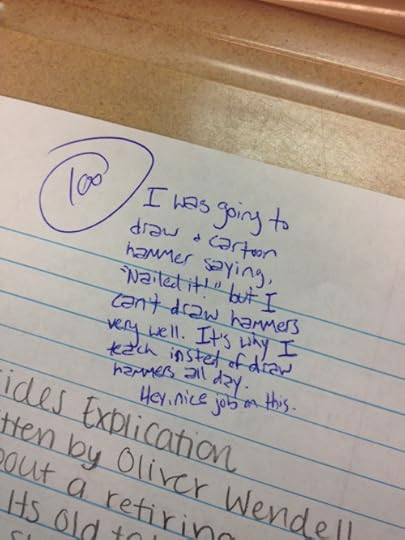 100
I was going to
draw a cartoon
hammer saying,
"Nailed it!" but I
can't draw hammers
very well. It's why I
teach insted of draw
hammers all day.
Hey, nice job on this.
ides Explication
tten by Oliver Wendell
bout a retiring
Its old to